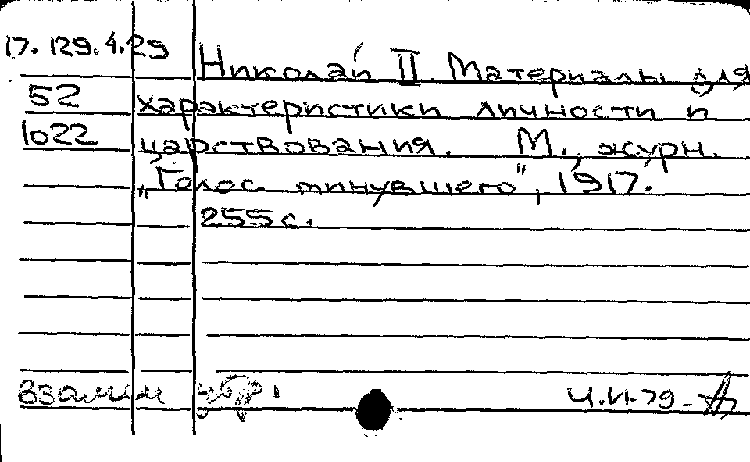 17.129.4.29
Николай II. Материалы для
52 характеристики личности и
1022 царствования. М., журн.
„Голос минувшего", 1917.
255 с.
взамен
4.VI.79